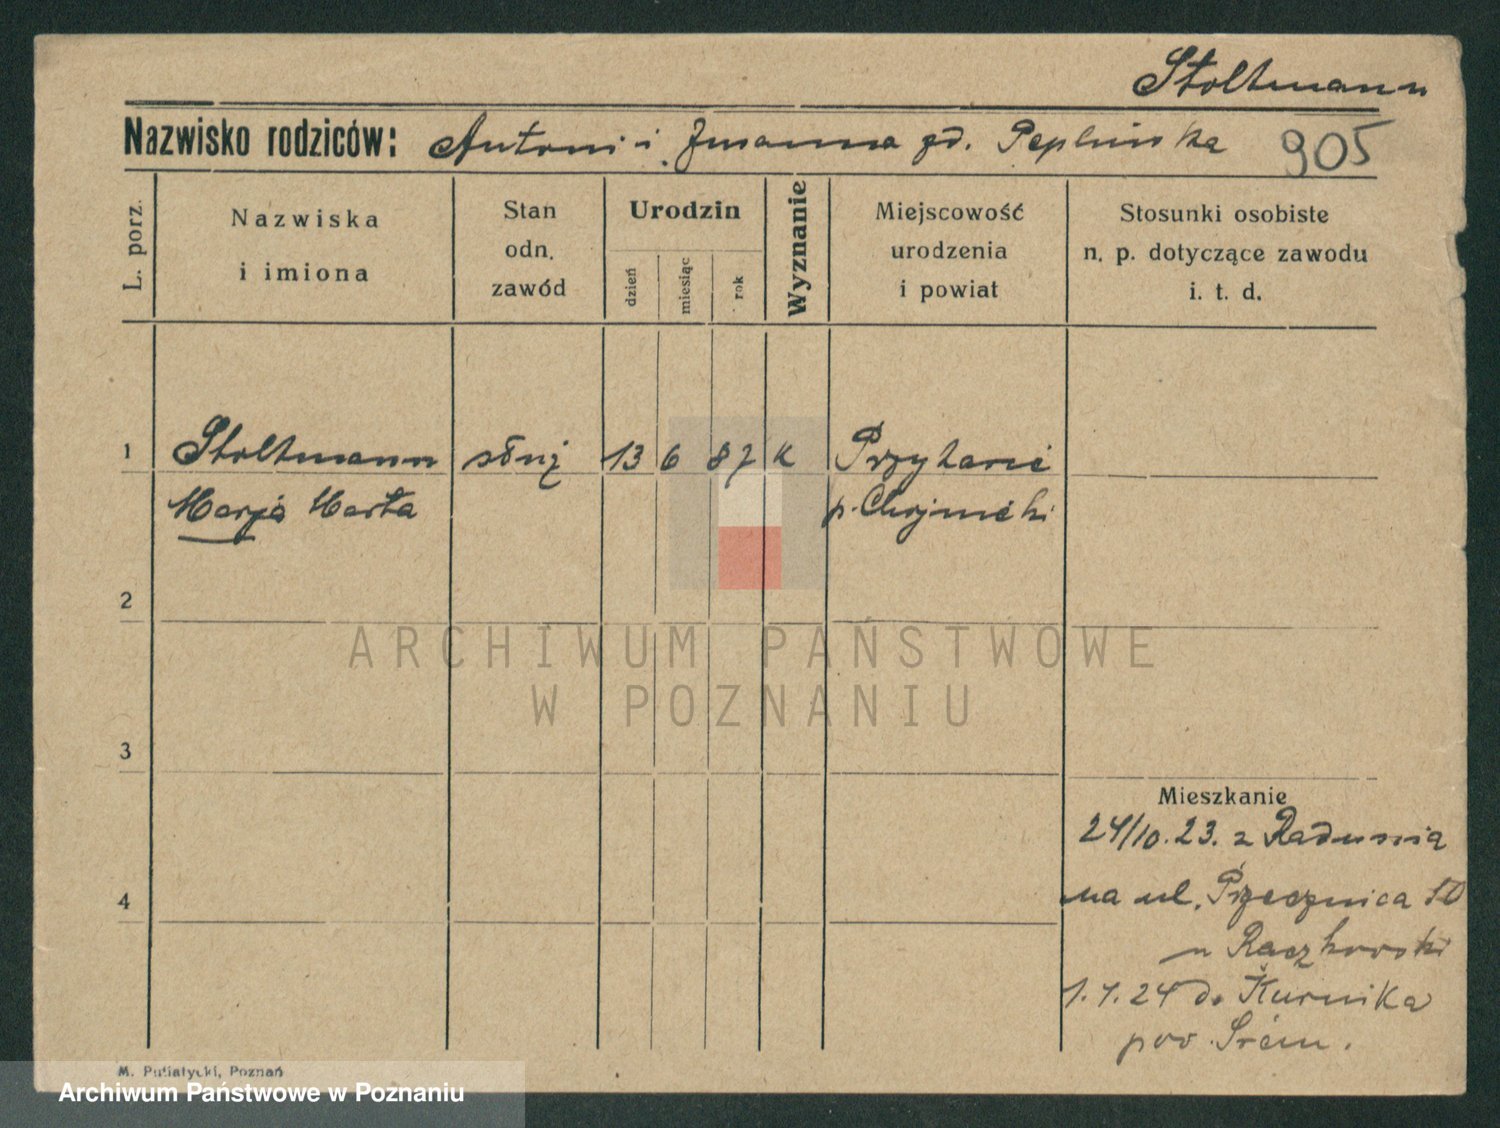 Stoltmann
Nazwisko rodziców: Antoni i zd. Peplińska 905
L. porz.
Nazwiska
i imiona
Stan
odn.
zawód
Urodzin
dzień
miesiąc
rok
Wyznanie
Miejscowość
urodzenia
i powiat
Stosunki osobiste
n. p. dotyczące zawodu
i. t. d.
1 Stoltmann służ 13 6 87 K Przytarnie
Marja Marta p. Chojnicki
2
3
4
Mieszkanie
24/10. 23. z Radunia
na ul. Przecznica 10
u Raczkowski
1.4.24 do Kurnika
pow. Śrem.
M. Putiatycki, Poznań
ARCHIWUM PAŃSTWOWE
W POZNANIU
Archiwum Państwowe w Poznaniu